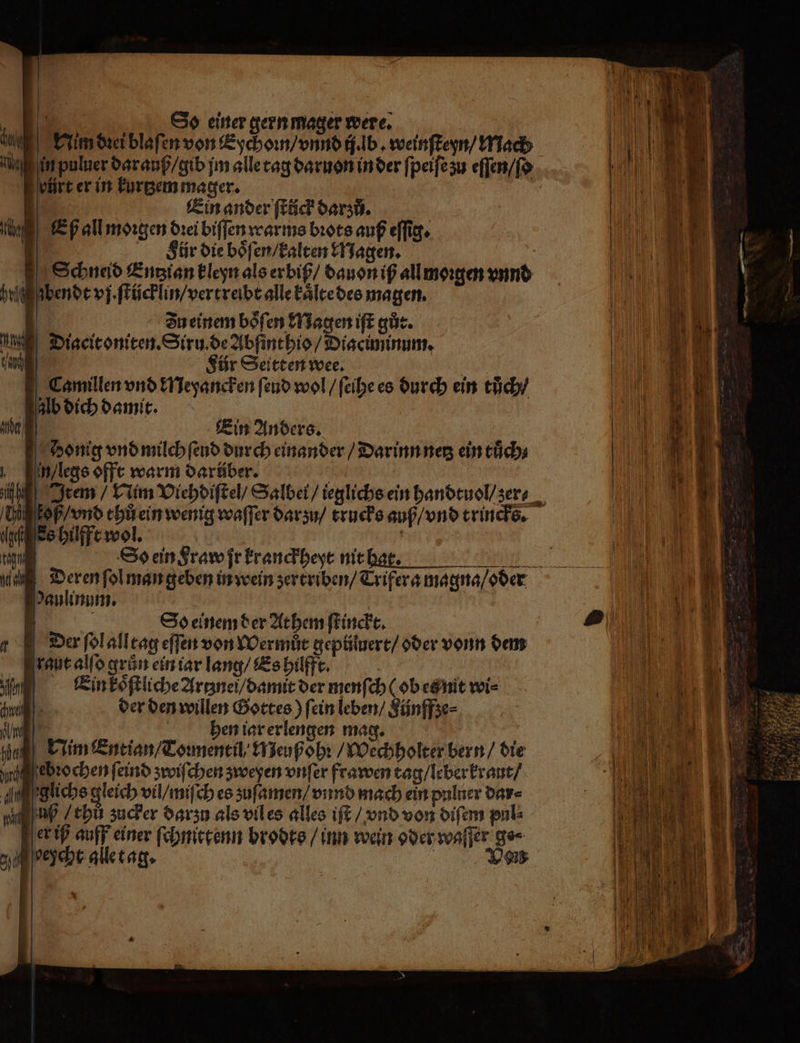 So einer gern mager were.
Nim drei blaſen von Eychorn/vnnd ij.lb. weinſteyn/Mach
in puluer darauß/gib jm alle tag daruon in der ſpeiſe zu eſſen/ſo
würt er in kurtzem mager.
Ein ander ſtück darzů.
Eß all morgen drei biſſen warms brots auß eſſig.
Für die böſen/kalten Magen.
Schneid Entzian kleyn als erbiß/ dauon iß all morgen vnnd
abendt vj.ſtücklin/vertreibt alle kälte des magen.
Zu einem böſen Magen iſt gůt.
Diacitoniten.Siru.de Abſinthio/Diaciminum.
Für Seitten wee.
Camillen vnd Meyancken ſeud wol/ſeihe es durch ein tůch/
ſalb dich damit.
Ein Anders.
Honig vnd milch ſeud durch einander/Darinn netz ein tůch⸗
lin/legs offt warm darüber.
Item/Nim Viehdiſtel/Salbei/ieglichs ein handtuol/zer⸗
ſtoß/vnd thů ein wenig waſſer darzu/ trucks auß/vnd trincks.
Es hilfft wol.
So ein Fraw jr kranckheyt nit hat.
Deren ſol man geben in wein zertriben/Trifera magna/oder
Paulinum.
So einem der Athem ſtinckt.
Der ſol all tag eſſen von Wermůt gepüluert/oder vonn dem
kraut alſo grün ein iar lang/Es hilfft.
Ein köſtliche Artznei/damit der menſch (ob es nit wi⸗
der den willen Gottes) ſein leben/Fünffze⸗
hen iar erlengen mag.
Nim Entian/Tormentil/Meußohr/Wechholter bern/ die
gebrochen ſeind zwiſchen zweyen vnſer frawen tag/leberkraut/
ieglichs gleich vil/miſch es zuſamen/vnnd mach ein puluer dar⸗
auß/thů zucker darzu als vil es alles iſt/vnd von diſem pul⸗
uer iß auff einer ſchnittenn brodts/inn wein oder waſſer ge⸗
weycht alle tag.
Von